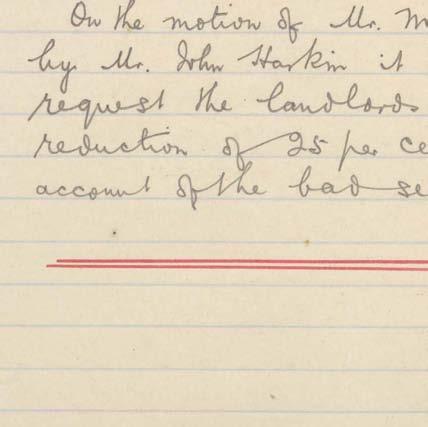 On the motion of Mr. M
by Mr. John Harkin it
request the landlords
reduction of 25 per ce
account of the bad se